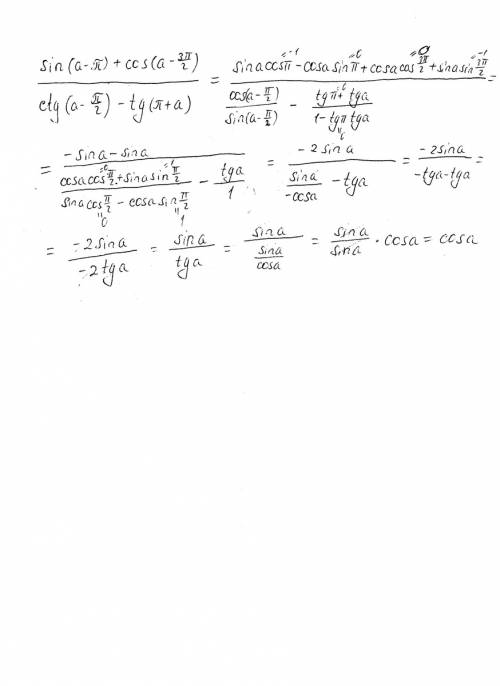 (sin(a-π) + cos(a-3π/2)) / (ctg(a-π/2) - tg(π+a)) = (sina cosπ^{=-1} - cosa sinπ^{=0} + cosa cos 3π/2^{=0} + sina sin 3π/2^{=-1}) / (cos(a-π/2)/sin(a-π/2) - (tgπ^{=0} + tga)/(1-tgπ_{=0} tga)) =
= (-sina - sina) / ((cosa cos π/2^{=0} + sina sin π/2^{=1})/(sina cos π/2_{=0} - cosa sin π/2_{=1}) - tga/1) = (-2sina) / (sina/-cosa - tga) = (-2sina) / (-tga-tga) =
= (-2sina)/(-2tga) = sina/tga = sina/(sina/cosa) = sina/sina · cosa = cosa